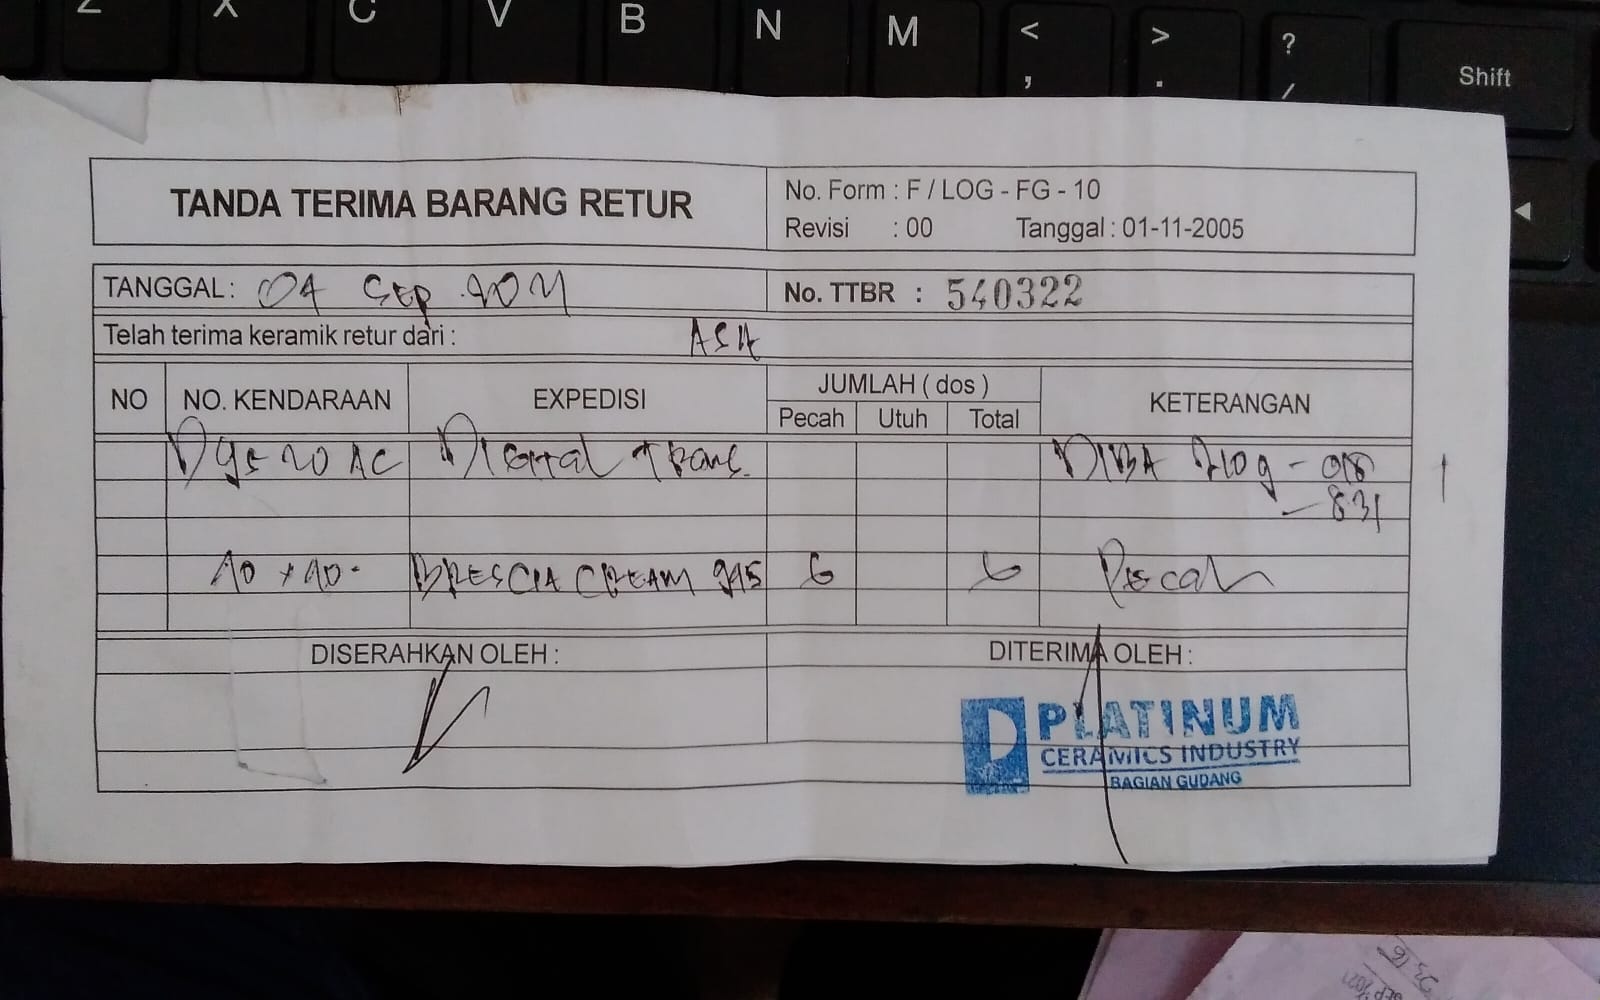 Z X C V B N M < , > . ? / Shift
TANDA TERIMA BARANG RETUR
No. Form : F / LOG - FG - 10
Revisi : 00 Tanggal : 01-11-2005
TANGGAL : 04 Sep 2021
No. TTBR : 540322
Telah terima keramik retur dari :
NO NO. KENDARAAN EXPEDISI JUMLAH ( dos ) KETERANGAN
Pecah Utuh Total
Digital Trans.
- 831
40 x 40 BRESCIA CREAM 6 6 Pecah
DISERAHKAN OLEH : DITERIMA OLEH :
PLATINUM
CERAMICS INDUSTRY
BAGIAN GUDANG